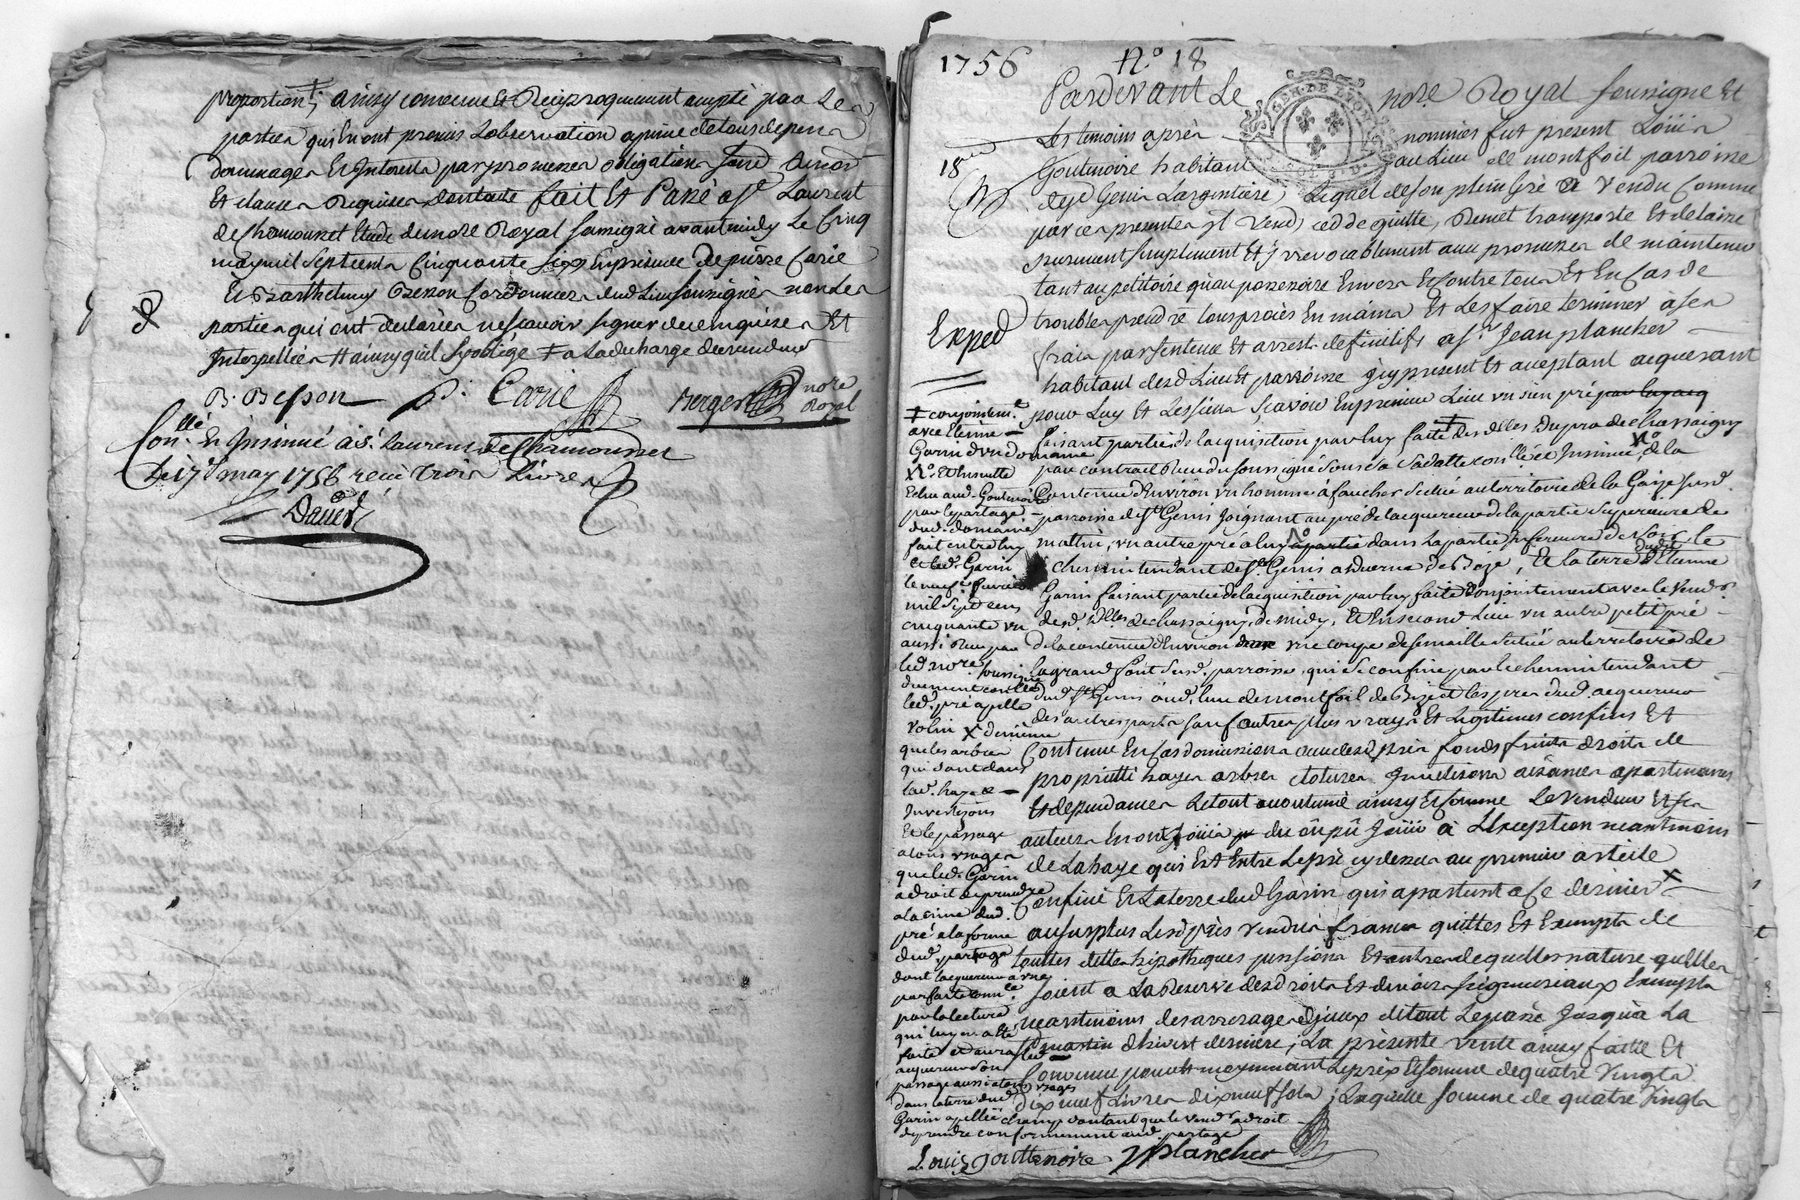 proportion ‡ ainsy convenu et Reciproquement accepté par Les
parties qui En ont promis Lobservation a peine de tous depens
dommages Et Interests par promesses obligations
Et clauses Requises dont acte fait Et Passé a St Laurent
de Chamousset Etude dud nore Royal soussigné avant midy Le Cinq
may mil sept cents Cinquante six En presence de pierre Carié
Et Barthelemy Besson Cordonniers dud Lieu soussignés non Les
parties qui ont declarées ne scavoir signer de ce enquises Et
Interpellées ‡
B. Besson P. Carié Berger nore Royal
Conllé Et Insinué a St Laurent de Chamousset
Le 17e may 1756 receu trois Livres
1756 No 18
Pardevant Le nore Royal soussigné Et
Les temoins après nommés fut present Loüis
18
Goutenoire habitant au Lieu de montfoil parroisse
de St Genis Largentiere, Lequel de son plein gré a vendu Comme
par ces presentes il vend, cedde quitte, Remet transporte Et delaisse
purement simplement Et jrrevocablement avec promesses de maintenir
tant au petitoire qu'au possessoire Envers Et Contre tous Et En Cas de
troubles prendre tous procès En mains Et Les faire terminer a ses
Exped
frais par sentence Et arrest definitifs a Sr Jean plancher
habitant desd Lieu Et parroisse jcy present Et aceptant acquerant
pour Luy Et Les siens scavoir En premier Lieu un sien pré
faisant partie de lacquisition par luy faite ‡ des dlles Dupra de chassaigny
par contrat Receu du soussigné sous sa datte conllé et Insinué, de la
Contenue d'Environ un homme a faucher scitué au territoire de la
parroisse de St Genis Joignant au pré de lacquereur de la partie superieure de
matin, un autre pré a luy dans la partie Inferieure de soir, le
chemin tendant de St Genis a, Et la terre dudt Etienne
Garin faisant partie de lacquisition par luy faite Conjointement avec le vendr
desd. Dlles de chassaigny, de midy, Et En second Lieu un autre petit pré
de la contenue d'Environ une coupe de semaille scitué au territoire de
la grand font susd. parroisse, qui se confine par le chemin tendant
dud St Genis aud. lieu de montfoil de Bize et les pres dud. acquereur
des autres parts sauf autres plus vrays Et Legitimes confins Et
Contenue En Cas d'omissions avec Lesd prés fonds fruits droits de
proprietté hayes arbres clotures Jonctions aisances apartenances
Et dependances Le tout accoutumé ainsy Et Comme Le vendeur Et ses
auteurs En ont Jouis du ou pû Jouir a L'Exception neantmoins
de La haye qui Est Entre Le pré cy dessus au premier article
Confiné Et La terre dud Garin qui apartient a Ce dernier X
au surplus Lesd prés vendus francs quittes Et Exempts de
touttes dettes hipotheques pensions Et autres de quelles nature qu'Elles
soient a La Reserve des droits Et devoirs seigneuriaux Exempts
neantmoins des arrerages d'jceux de tout Le passé Jusqu'a La
St martin d'hivert derniere, La presente vente ainsy faitte Et
Convenue pour Et moyennant Le prix Et somme de quatre vingts
dix neuf Livres dix neuf sols, Laquelle somme de quatre vingts
‡ conjointemt
avec Etienne
Garin d'un domaine
Xo. Et Ensuitte
Echu aud. Goutenoire
par le partage
dud. domaine
fait entre luy
et led. Garin
le fevrier
mil sept cens
cinquante un
aussi Receu par
led nore. soussigné
duement conllé
led. pré apellé
X de même
que les arbres
qui sont dans
lad. haye
Et le passage
a tous usages
que led. Garin
a droit de prendre
a la cime dud.
pré a la forme
dud. partage
dont lacquereur a une
parfaite connce
par la lecture
qui luy en a eté
faite et aura led
acquereur son
passage aussi a tous usages
dans la terre dud
Garin apellée champ dont que le vendr a droit
de prendre conformement aud. partage
Louis Gouttenoire JPlancher